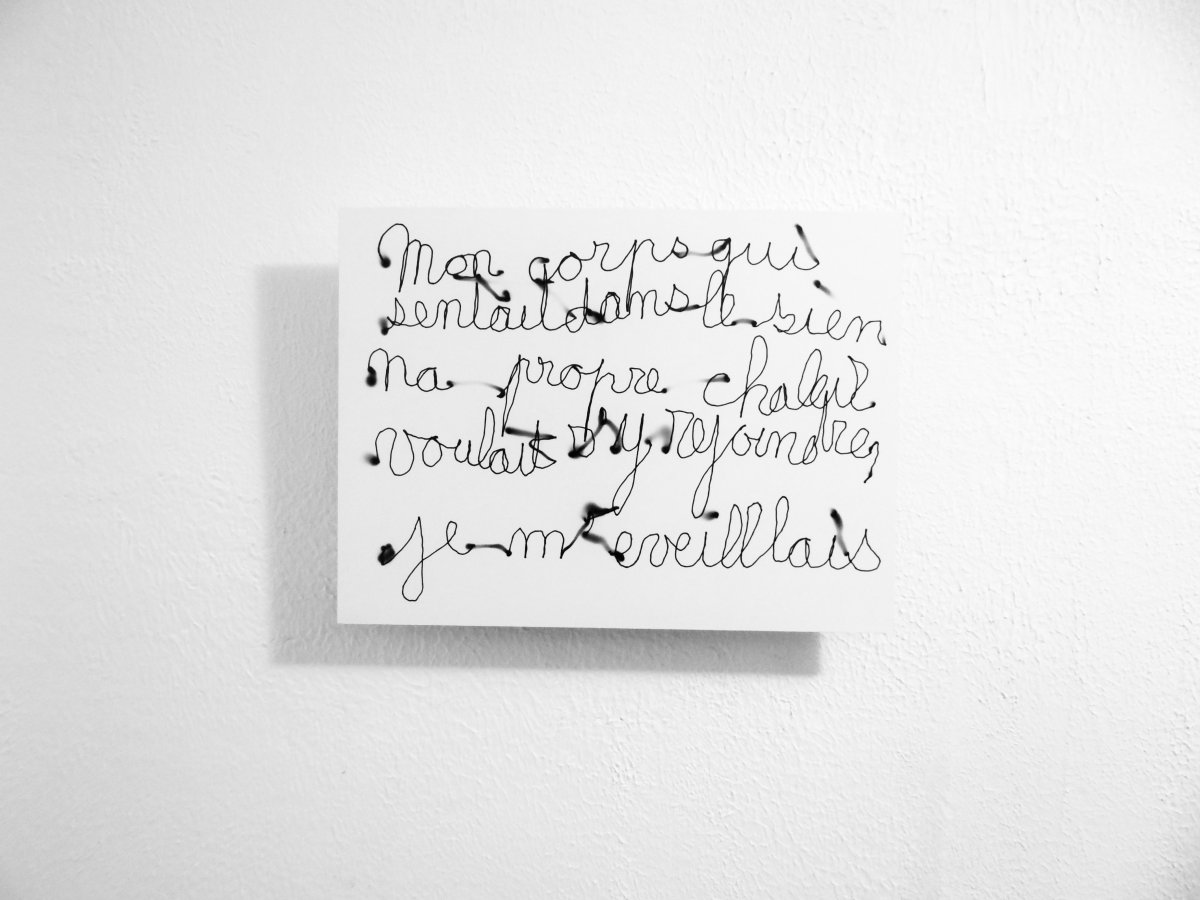 Mon corps qui
sentait dans le sien
ma propre chaleur
voulait s'y rejoindre,
je m'eveillais